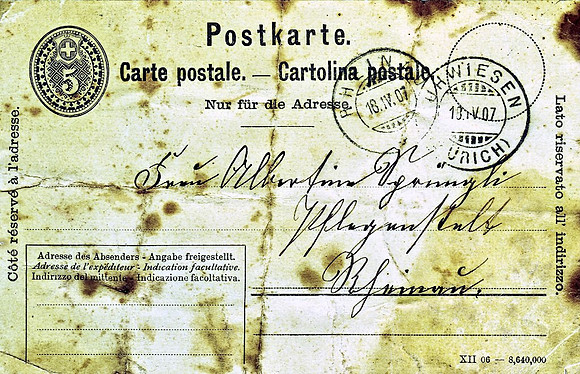 Postkarte.
5
Carte postale. — Cartolina postale.
Nur für die Adresse.
RHEINAU
16.IV.07.
UHWIESEN
16.IV.07.
(ZÜRICH)
Côté réservé à l'adresse.
Lato riservato all' indirizzo.
Frau Albertine Sprüngli
Pfleganstalt
Rheinau.
Adresse des Absenders - Angabe freigestellt.
Adresse de l'expéditeur - Indication facultative.
Indirizzo del mittente - Indicazione facoltativa.
XII 06 — 8,640,000